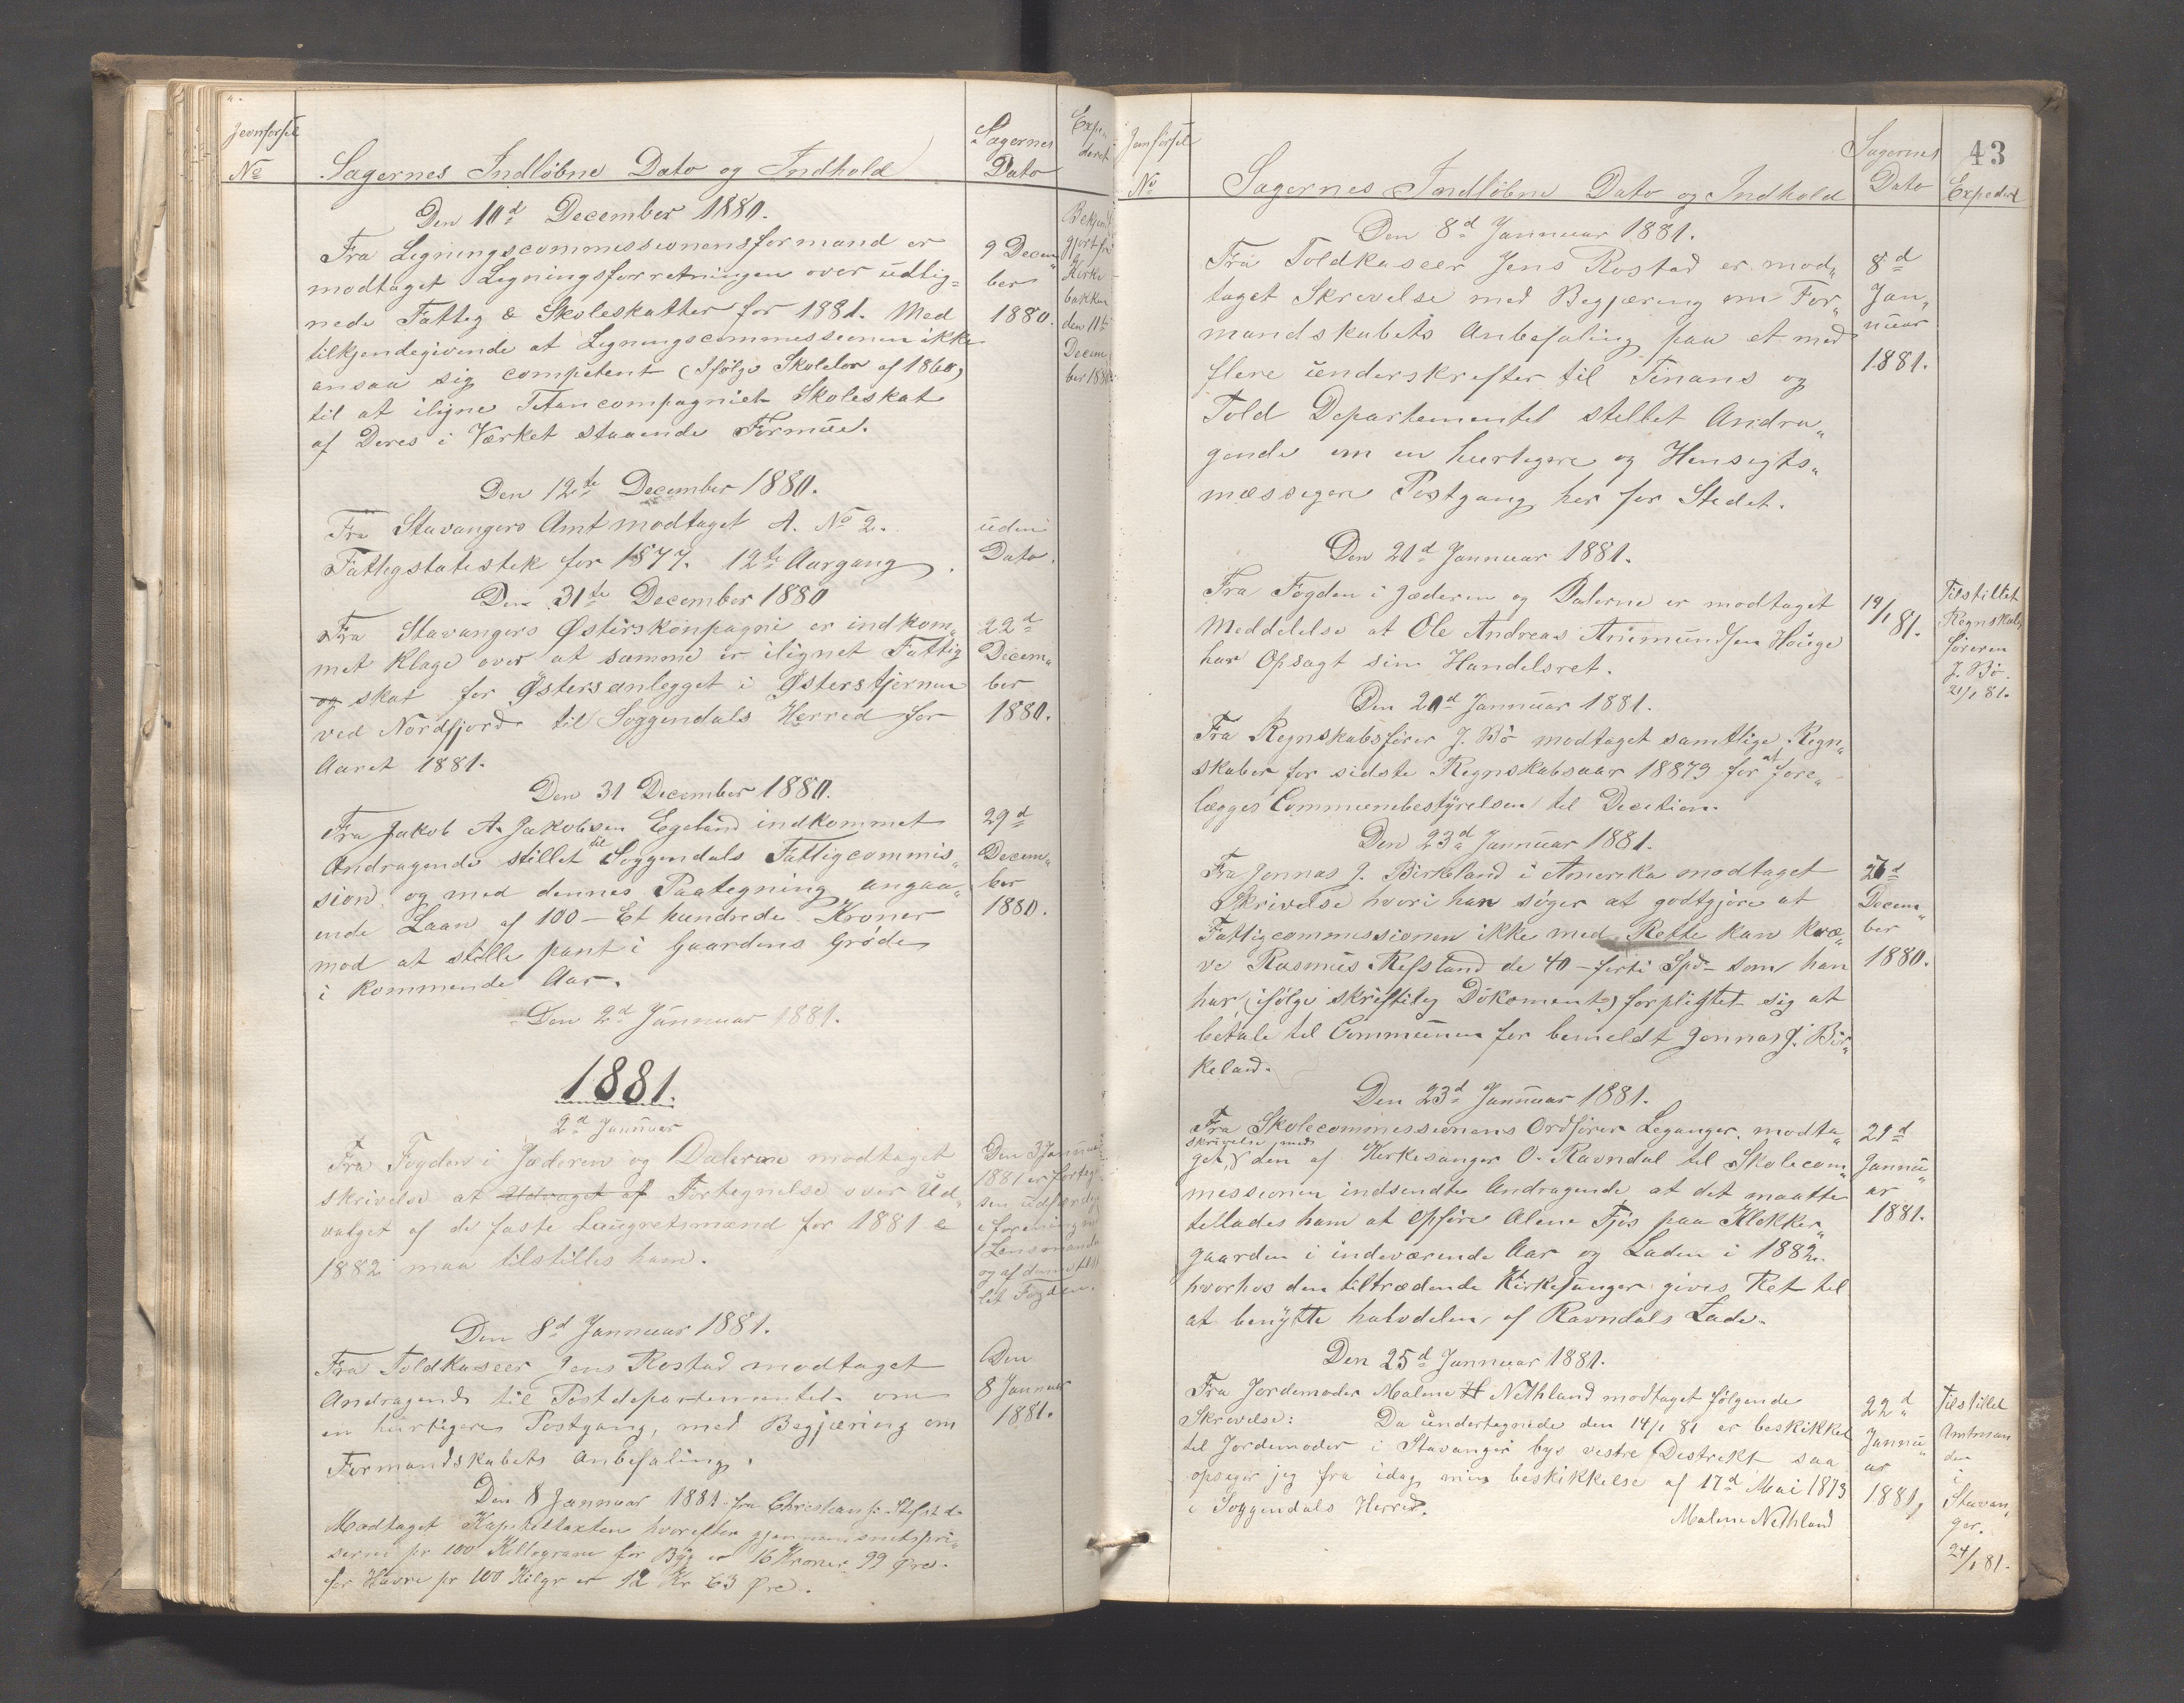 Jevnförsel
No
Sagernes Indløbne Dato og Indhold
Sagernes
Dato
Expe-
deret
Den 10d December 1880.
Fra Ligningscommissionensformand er
modtaget Ligningsforretningen over udlig=
nede Fattig & Skoleskatter for 1881. Med
tilkjendegivende at Ligningscommissionen ikke
ansaa sig competent (Ifølge Skolelov af 1860)
til at iligne Titancompagniet Skoleskat
af Deres i Værket staaende Formue.
9 Decem„
ber
1880.
Bekjendt
gjort fra
Kirke
bakken
den 11te
Decem
ber 1880
Den 12te December 1880.
Fra Stavangers Amt modtaget A. No 2.
Fattigstatistik for 1877. 12te Aargang.
uden
Dato.
Den 31te December 1880
Fra Stavangers Østerskonpagni er indkom„
met Klage over at samme er ilignet Fattig
og skat for Østersanlegget i Østerstjernen
ved Nordfjord til Soggendals Herred for
Aaret 1881.
22d
Decem„
ber
1880.
Den 31 December 1880.
Fra Jakob A. Jakobsen Egeland indkommet
Andragende stillet til Soggendals Fattigcommis„
sion og med dennes Paategning angaa„
ende Laan af 100 – Et hundrede Kroner
mod at stille pant i Gaardens Grøde
i kommende Aar.
29d
Decem„
ber
1880.
Den 2d Januar 1881.
1881.
2d Januar
Fra Fogden i Jæderen og Dalerne modtaget
skrivelse at Udvaget af Fortegnelse over Ud„
valget af de faste Laugretsmænd for 1881 &
1882 maa tilstilles ham.
Den 3 Januar
1881 er forteg-
sen udfærdig
i forening med
Lensmanden
og af denne till
let Fogden.
Den 8d Jannuar 1881.
Fra Toldkaseer Jens Rostad modtaget
Andragende til Postdepartementet om
en hurtigere Postgang, med Begjæring om
Formandskabets Anbefaling.
Den
8 Januar
1881.
Den 8 Januar 1881 fra Christiansf. Stift d.
Modtaget Kapiteltaxten hvorefter gjennemsnitspri„
serne pr 100 Killogram for Byg er 16 Kroner 99 Øre.
for Havre pr 100 Kilgr er 12 Kr 63 Øre.
Jevnförsel
No
Sagernes Indløbne Dato og Indhold
Sagernes
Dato
43
Expedert
Den 8d Jannuar 1881.
Fra Toldkaseer Jens Rostad er mod„
taget Skrivelse med Begjæring om For„
mandskabets Anbefaling paa et med
flere underskrefter til Finans og
Told Departementet stillet Andra„
gende om en hurtigere og Hensigts„
mæssigere Postgang her for Stedet.
8d
Jan„
nuar
1881.
Den 21d Jannuar 1881.
Fra Fogden i Jæderen og Dalerne er modtaget
Meddelelse at Ole Andreas Anemundsen Hauge
har Opsagt sin Handelsret.
14/1 81.
Tilstillet
Regnskabs
føreren
J. Bö.
21/1 81.
Den 20d Januar 1881.
Fra Regnskabsfører J. Bö modtaget samtlige Regn„
skaber for sidste Regnskabsaar 18879 for at fore„
lægges Communebestyrelsen til Decition.
Den 23d Januar 1881.
Fra Jonnas J. Birkeland i Amerika modtaget
Skrivelse hvori han søger at godtgjøre at
Fattigcommissionen ikke med Rette kan kræ„
ve Rasmus Refsland de 40 – förti Spd – som han
har, (ifølge skriftlig Dokument) forpligtet sig at
betale til Communen for bemeldt Jonnas J. Bir„
keland.
26d
Decem„
ber
1880.
Den 23d Januar 1881.
Fra Skolecommissionens Ordfører Leganger modta„
skrivelse med
get, & den af Kirkesanger O. Ravndal til Skolecom„
missionen indsendte Andragende at det maatte
tillades ham at Opføre Alene Fjös paa Klokker„
gaarden i indeværende Aar og Laden i 1882.
hvorhos den tiltrædende Kirkesanger gives Ret til
at benytte halvdelen af Ravndals Lade.
21d
Jannu„
ar
1881.
Den 25d Jannuar 1881.
Fra Jordemoder Malene H Nethland modtaget følgende
Skrivelse: Da undertegnede den 14/1 81 er beskikket
til Jordemoder i Stavanger bys vestre Destrekt saa
opseger jeg fra idag min beskikkelse af 17d Mai 1873
i Soggendals Herred.
Malene Nethland
22d
Jannu„
ar
1881,
Tilstillet
Amtman
den
i
Stavan„
ger.
24/1 81.